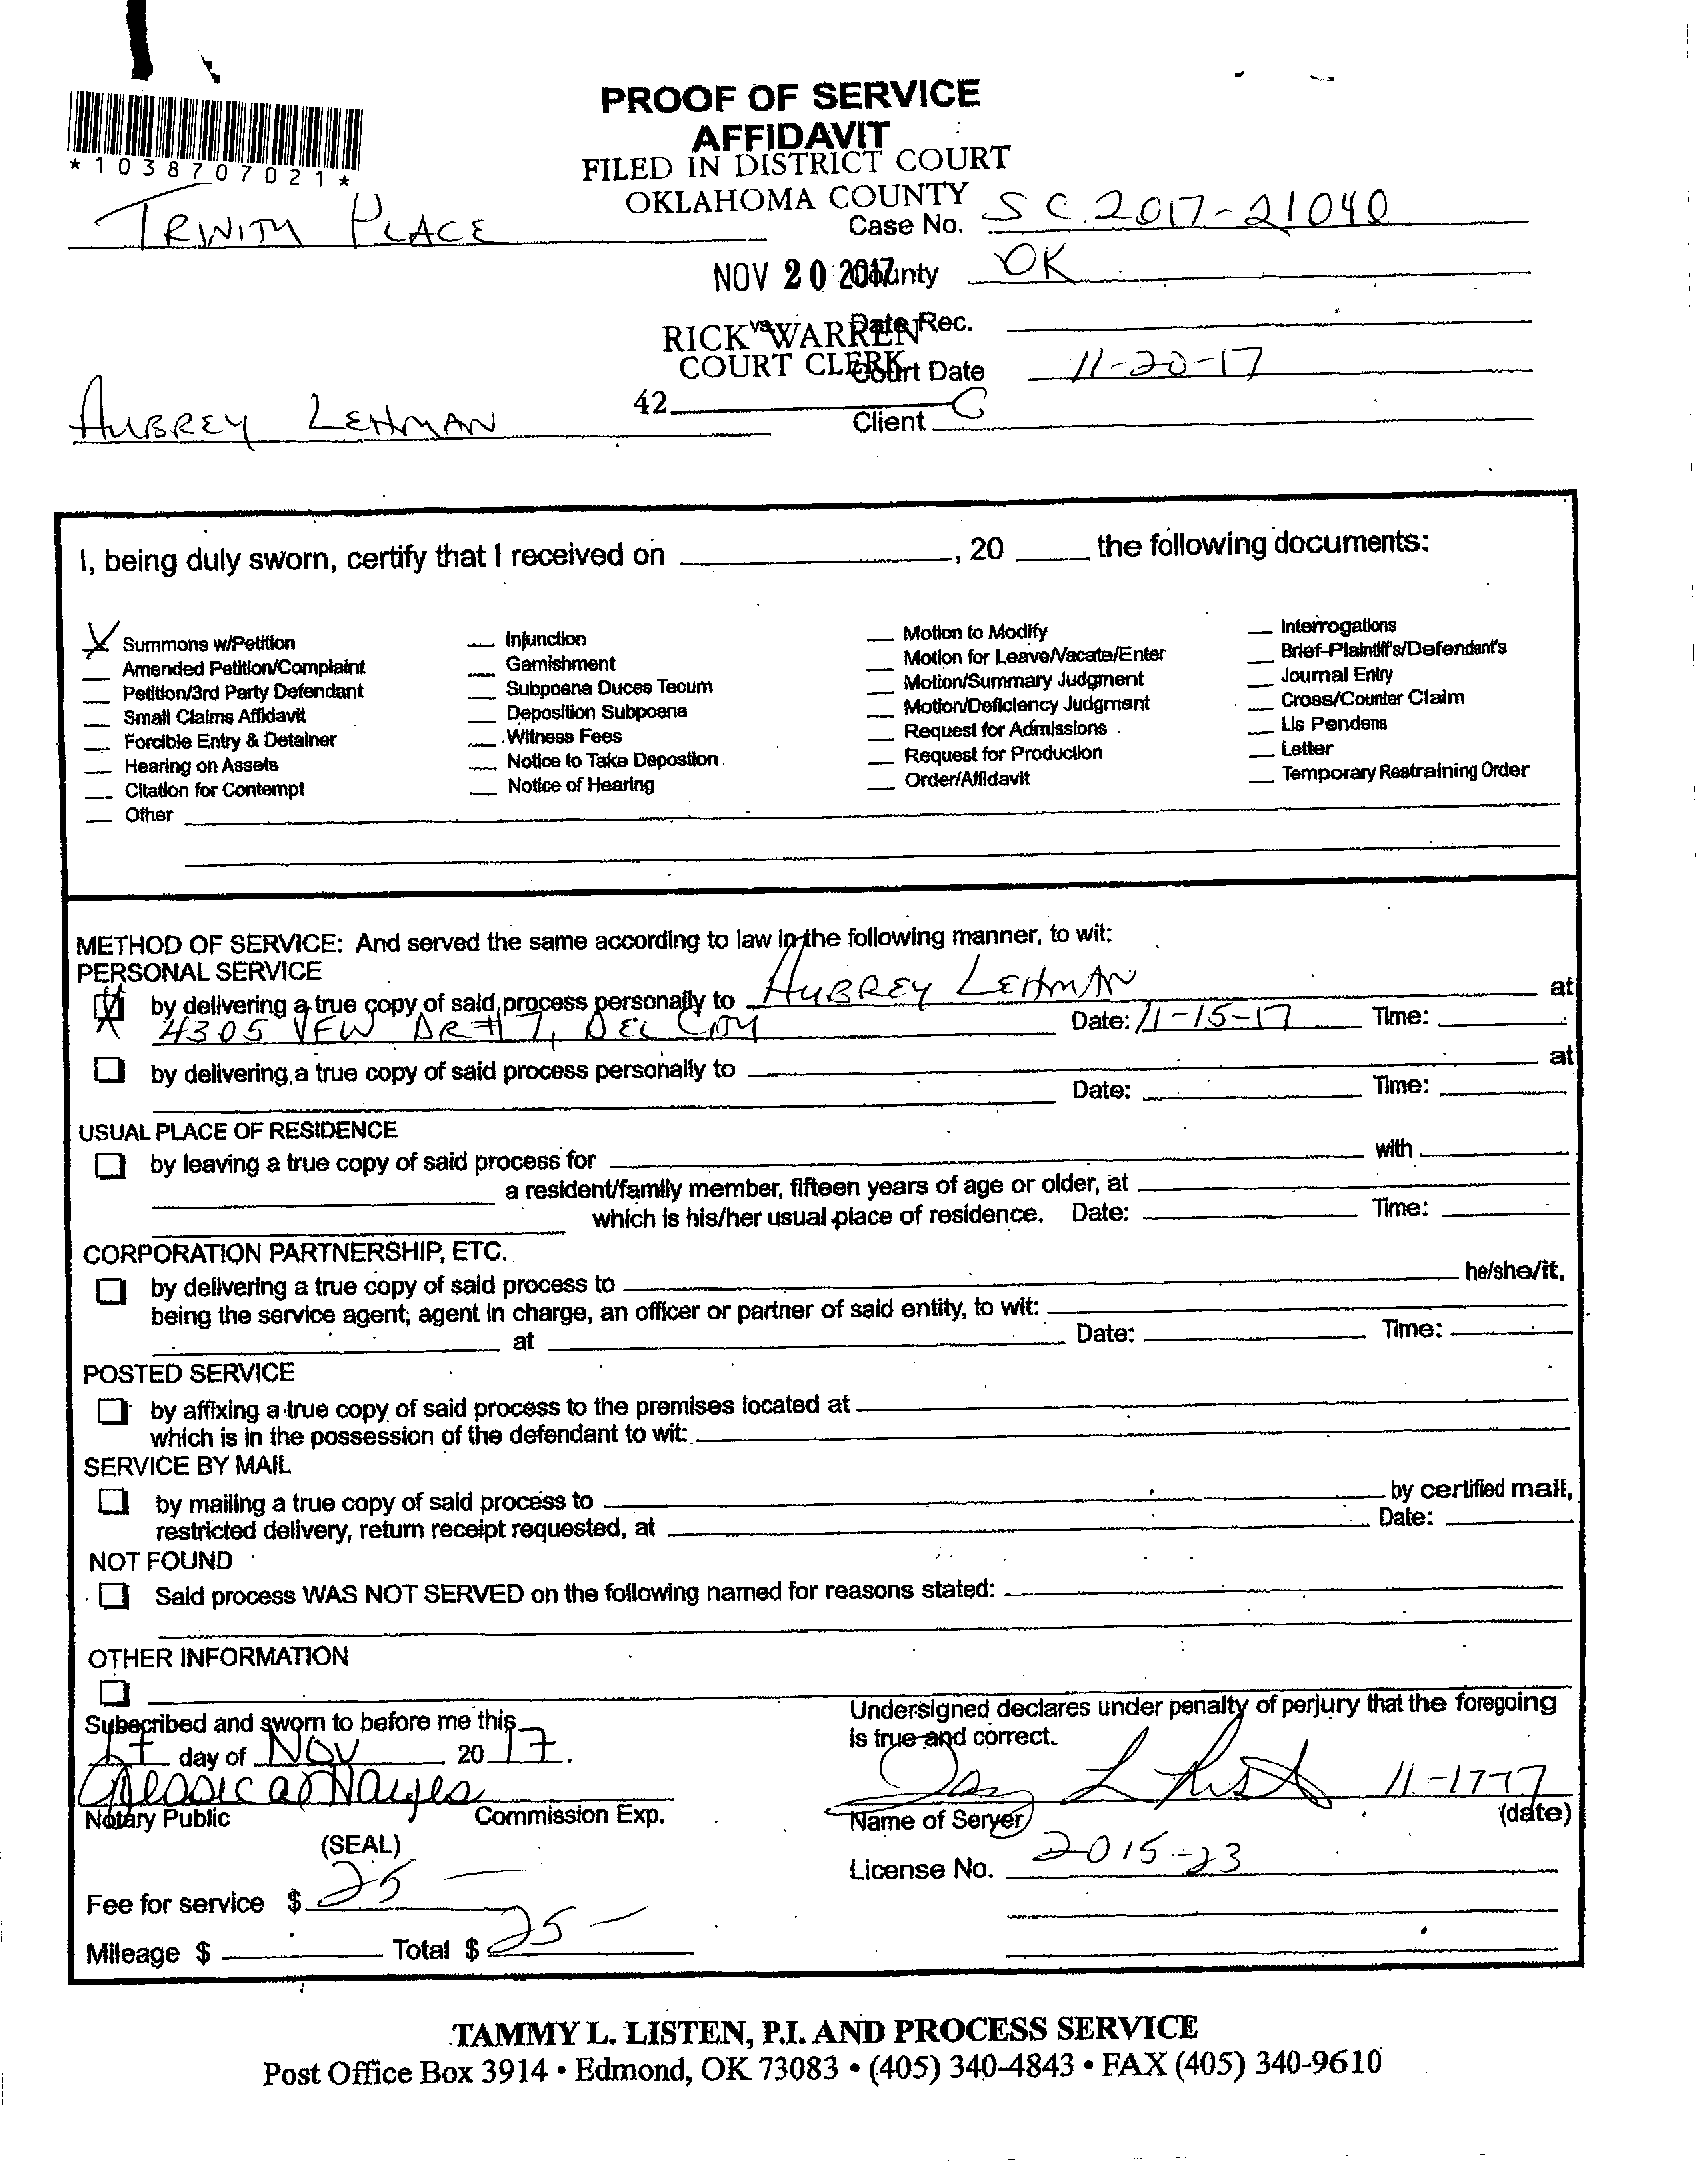 PROOF OF SERVICE
AFFIDAVIT
FILED IN DISTRICT COURT
OKLAHOMA COUNTY
*1038707021*
TRINITY PLACE
Case No. SC 2017-21040
NOV 20 2017
County OK
vs
RICK WARREN
Date Rec.
COURT CLERK
Court Date 11-20-17
42
AUBREY LEHMAN
Client
I, being duly sworn, certify that I received on ____, 20 ____ the following documents:
X Summons w/Petition
Amended Petition/Complaint
Petition/3rd Party Defendant
Small Claims Affidavit
Forcible Entry & Detainer
Hearing on Assets
Citation for Contempt
Other
Injunction
Garnishment
Subpoena Duces Tecum
Deposition Subpoena
Witness Fees
Notice to Take Depostion
Notice of Hearing
Motion to Modify
Motion for Leave/Vacate/Enter
Motion/Summary Judgment
Motion/Deficiency Judgment
Request for Admissions
Request for Production
Order/Affidavit
Interrogations
Brief-Plaintiff's/Defendant's
Journal Entry
Cross/Counter Claim
Lis Pendens
Letter
Temporary Restraining Order
METHOD OF SERVICE: And served the same according to law in the following manner, to wit:
PERSONAL SERVICE
X by delivering a true copy of said process personally to AUBREY LEHMAN at
4305 VFW DR #7, DEL CITY Date: 11-15-17 Time:
by delivering a true copy of said process personally to at
Date: Time:
USUAL PLACE OF RESIDENCE
by leaving a true copy of said process for with
a resident/family member, fifteen years of age or older, at
which is his/her usual place of residence. Date: Time:
CORPORATION PARTNERSHIP, ETC.
by delivering a true copy of said process to he/she/it,
being the service agent, agent in charge, an officer or partner of said entity, to wit:
at Date: Time:
POSTED SERVICE
by affixing a true copy of said process to the premises located at
which is in the possession of the defendant to wit:
SERVICE BY MAIL
by mailing a true copy of said process to by certified mail,
restricted delivery, return receipt requested, at Date:
NOT FOUND
Said process WAS NOT SERVED on the following named for reasons stated:
OTHER INFORMATION
Subscribed and sworn to before me this
17 day of Nov 20 17.
Notary Public Commission Exp.
(SEAL)
Fee for service $ 25 —
Mileage $ Total $ 25 —
Undersigned declares under penalty of perjury that the foregoing
is true and correct.
11-17-17
Name of Server (date)
License No. 2015-23
TAMMY L. LISTEN, P.I. AND PROCESS SERVICE
Post Office Box 3914 • Edmond, OK 73083 • (405) 340-4843 • FAX (405) 340-9610